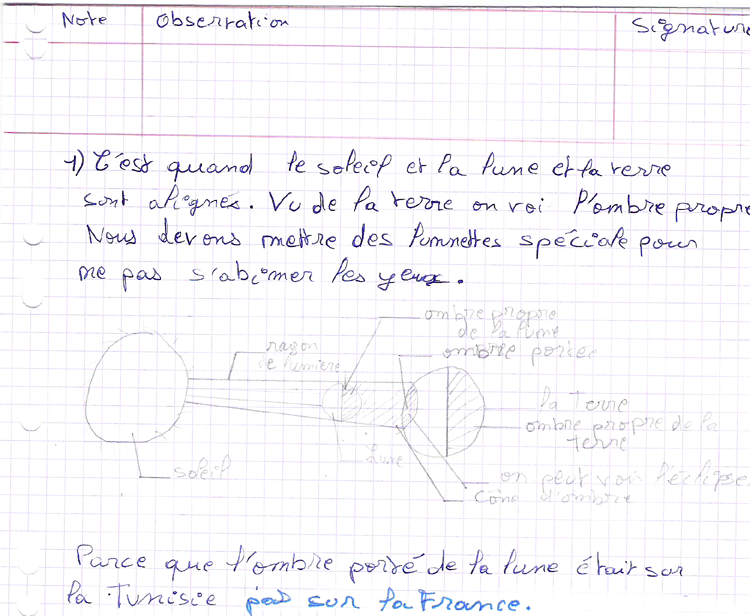 Note Observation Signature
1) C'est quand le soleil et la lune et la terre
sont alignés. Vu de la terre on voi l'ombre propre
Nous devons mettre des lunnettes spéciale pour
ne pas s'abimer les yeux.
ombre propre
de la lune
rayon
de lumière
ombre portée
la Terre
ombre propre de la
terre
Lune
soleil
on peut voir l'éclipse
Cône d'ombre
Parce que l'ombre porté de la lune était sur
la Tunisie pas sur la France.